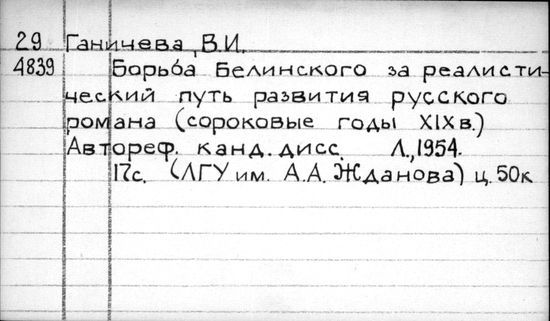 29 Ганичева, В.И.
4839 Борьба Белинского за реалисти-
ческий путь развития русского
романа (сороковые годы XIX в.)
Автореф. канд. дисс. Л., 1954.
17с. (ЛГУ им. А.А. Жданова) ц. 50к